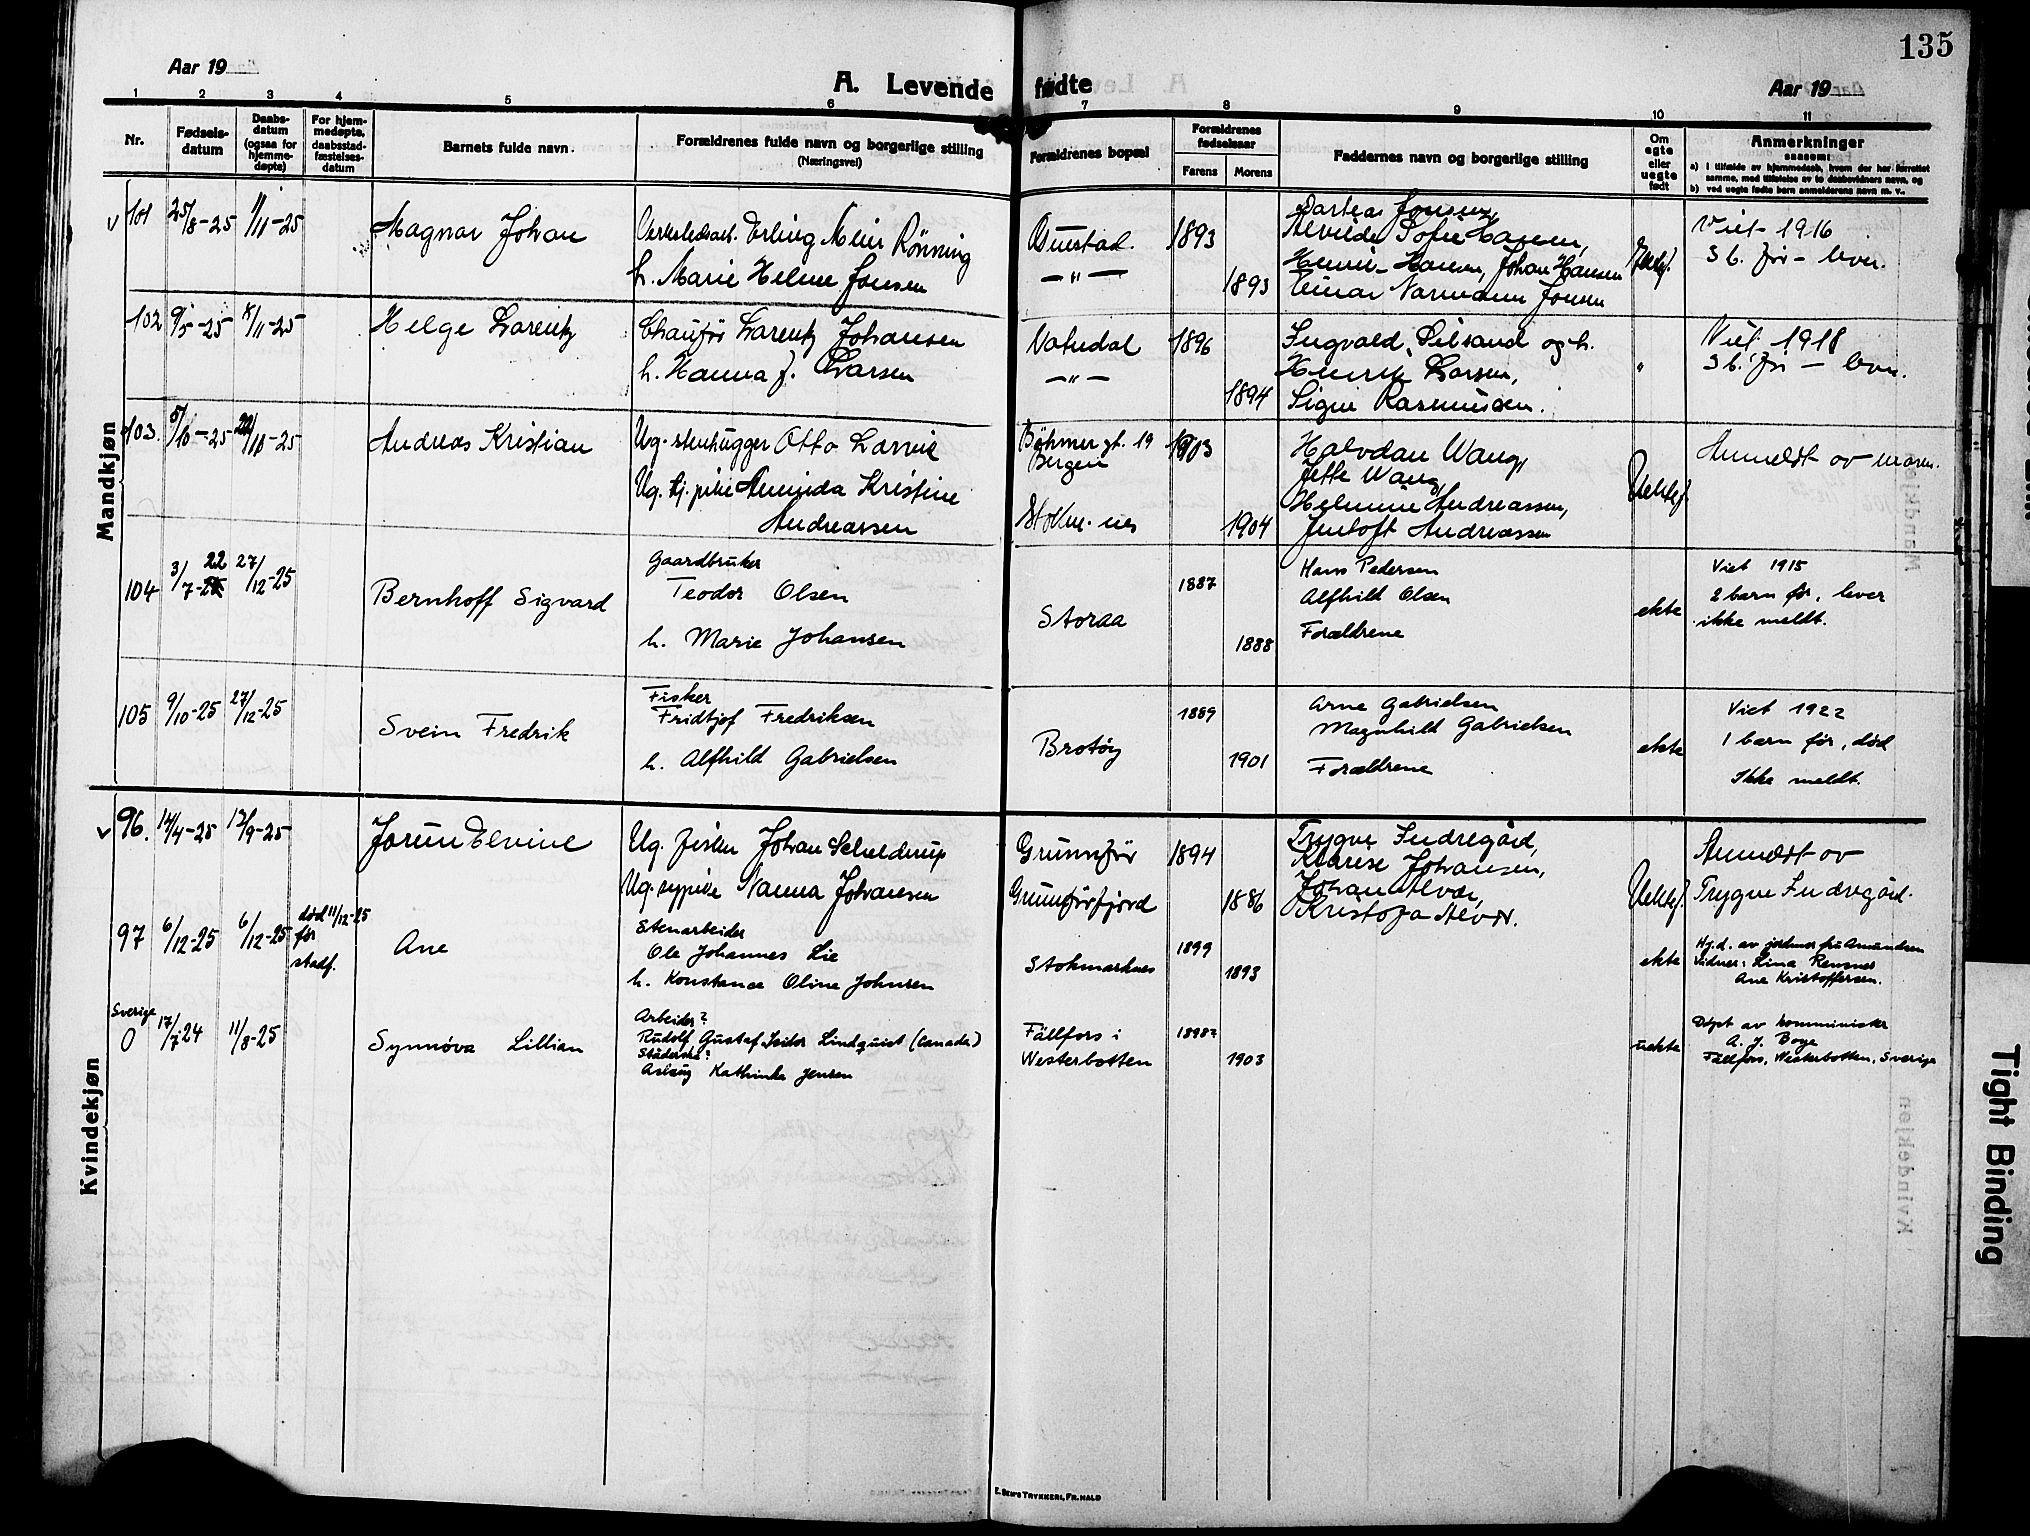 135
Aar 19
A. Levende fødte
Aar 19
1 2 3 4 5 6 7 8 9 10 11
Nr.
Fødsels-
datum
Daabs-
datum
(ogsaa for
hjemme-
døpte)
For hjem-
medøpte,
daabsstad-
fæstelses-
datum
Barnets fulde navn.
Forældrenes fulde navn og borgerlige stilling
(Næringsvei)
Forældrenes bopæl
Forældrenes
fødselsaar
Farens Morens
Faddernes navn og borgerlige stilling
Om
egte
eller
uegte
født
Anmerkninger
saasom:
a) i tilfælde av hjemmedaab, hvem der har forrettet
samme, med tilføielse av to daabsvidners navn, og
b) ved uegte fødte børn anmelderens navn m. v.
Mandkjøn
101 25/8-25 1/11-25
Magnar Johan
Erling Meier Rönning
h. Marie Helene Jonsen
1893
1893
Jonsen,
Alvilde Sofie Hansen,
Henrik Hansen, Johan Hansen
Einar Normann Jonsen
Viet 1916
3 b. før - lever.
102 9/5-25 8/11-25
Helge Lorentz
Chaufør Lorentz Johansen
h. Hanna J. Larsen
Vatndal
1896
1894
Ingvald og h.
Henrik Larsen,
Signe Rasmussen.
Viet 1918
3 b. før - lever.
103. 5/10-25 22/10-25
Andreas Kristian
Ug. stenhugger Otto
Ug. tj. pike Kristine
Andreassen
Böhmer gt. 19
Bergen
Stokm.nes
1903
1904
Halvdan Wang,
Jette Wang,
Helmine Andreassen,
Jentoft Andreassen
Uekte f.
Anmeldt av moren.
104 3/7-22 27/12-25
Bernhoff Sigvard
Gaardbruker
Teodor Olsen
h. Marie Johansen
Storaa
1887
1888
Hans Pedersen
Alfhild Olsen
Forældrene
ekte
Viet 1915
2 barn før, lever
ikke meldt.
105 9/10-25 27/12-25
Svein Fredrik
Fisker
Fridtjof Fredriksen
h. Alfhild Gabrielsen
Brotøy
1889
1901
Arne Gabrielsen
Magnhild Gabrielsen
Forældrene
ekte
Viet 1922
1 barn før, død
Ikke meldt.
Kvindekjøn
96. 14/4-25 13/9-25
Jorun Elvine
Ug. fisker Johan Schelderup
Ug. sypike Nanna Johansen
Grunnför
Grunnförfjord
1894
1886
Trygve Indregård,
Klarise Johansen,
Johan Alvær,
Kristofa Alvær.
Uekte f.
Anmeldt av
Trygve Indregård.
97 6/12-25 6/12-25
død 11/12-25
før
stadf.
Ane
Stenarbeider
Ole Johannes Lie
h. Konstance Oline Johnsen
Stokmarknes
1899
1893
ekte
Hj.d. av jordmor fru Amundsen
Vidner: Lina Rensner
Ane Kristoffersen.
Sverige
0 17/7-24 11/8-25
Synnöva Lillian
Arbeider?
Rudolf Gustaf Isidor Lindquist (Canada)
Studerske?
Aslaug Kathinka Jensen
Fällfors i
Westerbotten
1898?
1903
uekte
Døpt av komminister
A. J. Boye
Fällfors, Westerbotten, Sverige
E. Sem's Trykkeri, Fr.hald
Tight Binding